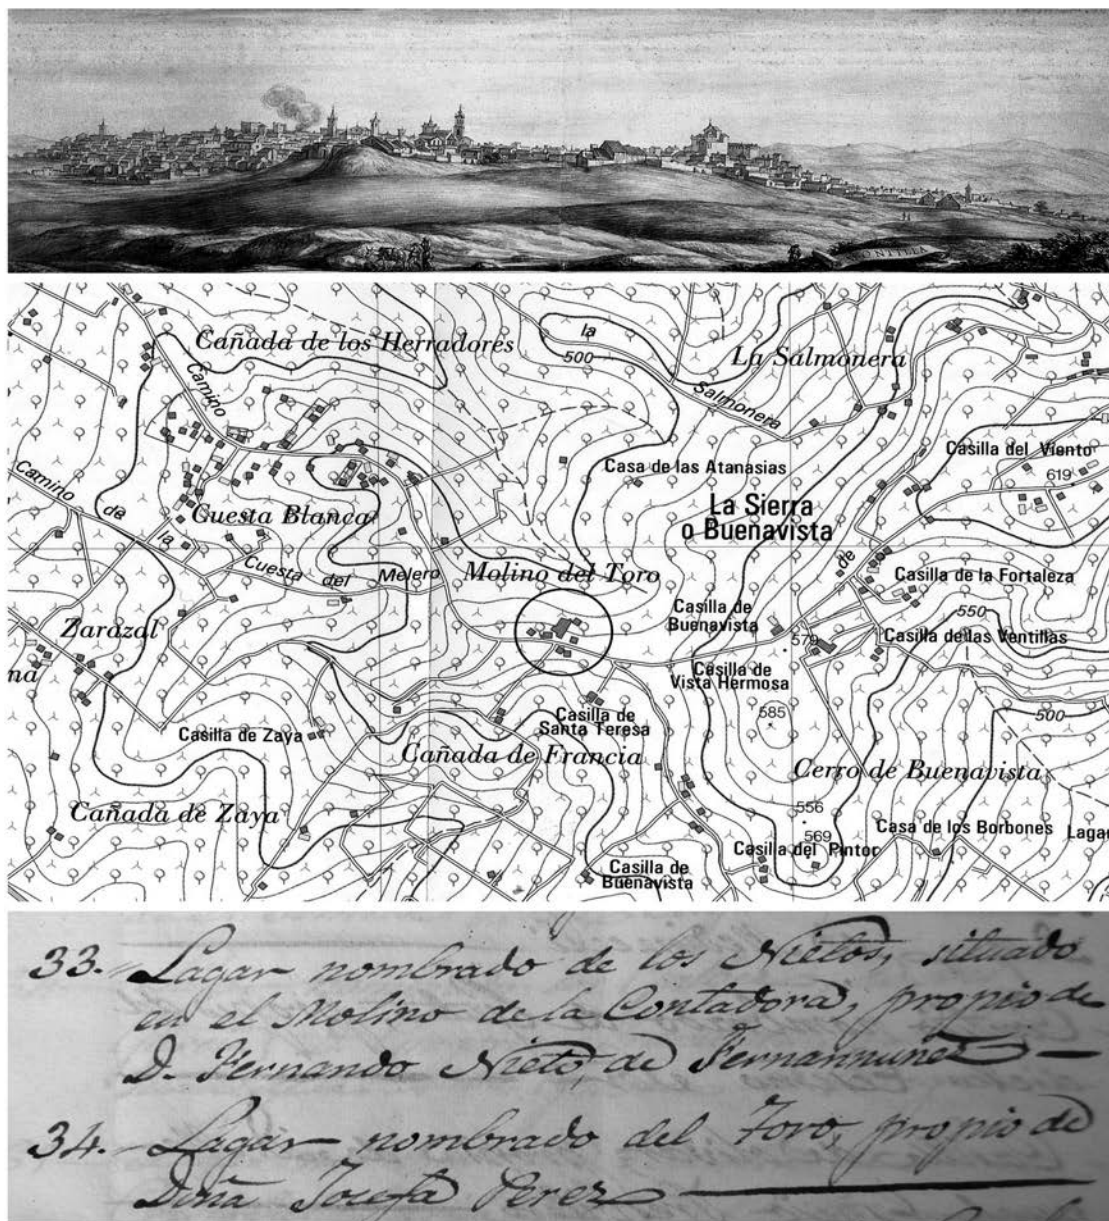 ONTILLA
Cañada de los Herradores
la
500
La Salmonera
Camino
Salmonera
Casa de las Atanasias
Casilla del Viento
619
Camino
de
la
Cuesta Blanca
La Sierra
o Buenavista
de
Cuesta del Melero
Molino del Toro
Casilla de la Fortaleza
Casilla de
Buenavista
550
Zarazal
579
Casilla de las Ventillas
na
Casilla de
Vista Hermosa
585
500
Casilla de
Santa Teresa
Casilla de Zaya
Cañada de Francia
Cerro de Buenavista
Cañada de Zaya
556
569
Casa de los Borbones
Lagar
Casilla del Pintor
Casilla de
Buenavista
33. Lagar nombrado de los Nietos, situado
en el Molino de la Contadora, propio de
D. Fernando Nieto, de Fernannuñez
34. Lagar nombrado del Toro, propio de
Doña Josefa Perez